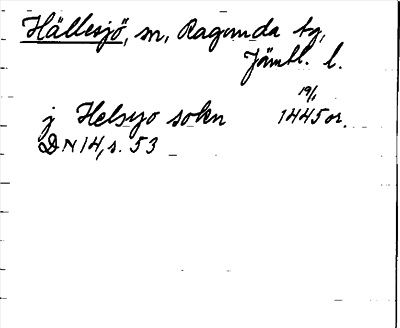 Hällesjö, sn, Ragunda tg,
Jämtl. l.
19/1
j Helsyo sokn 1445 or.
DN 14, s. 53